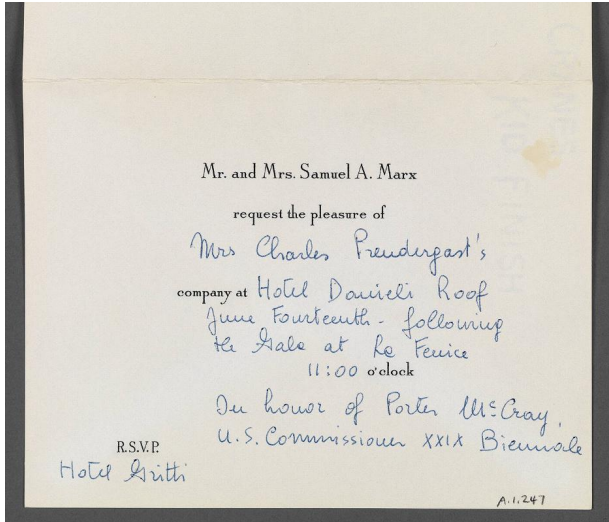 Mr. and Mrs. Samuel A. Marx
request the pleasure of
Mrs Charles Prendergast's
company at Hotel Danieli Roof
June Fourteenth - following
the Gala at La Fenice
11:00 o'clock
In honor of Porter McCray,
U.S. Commissioner XXIX Biennale
R.S.V.P.
Hotel Gritti
A.1.247